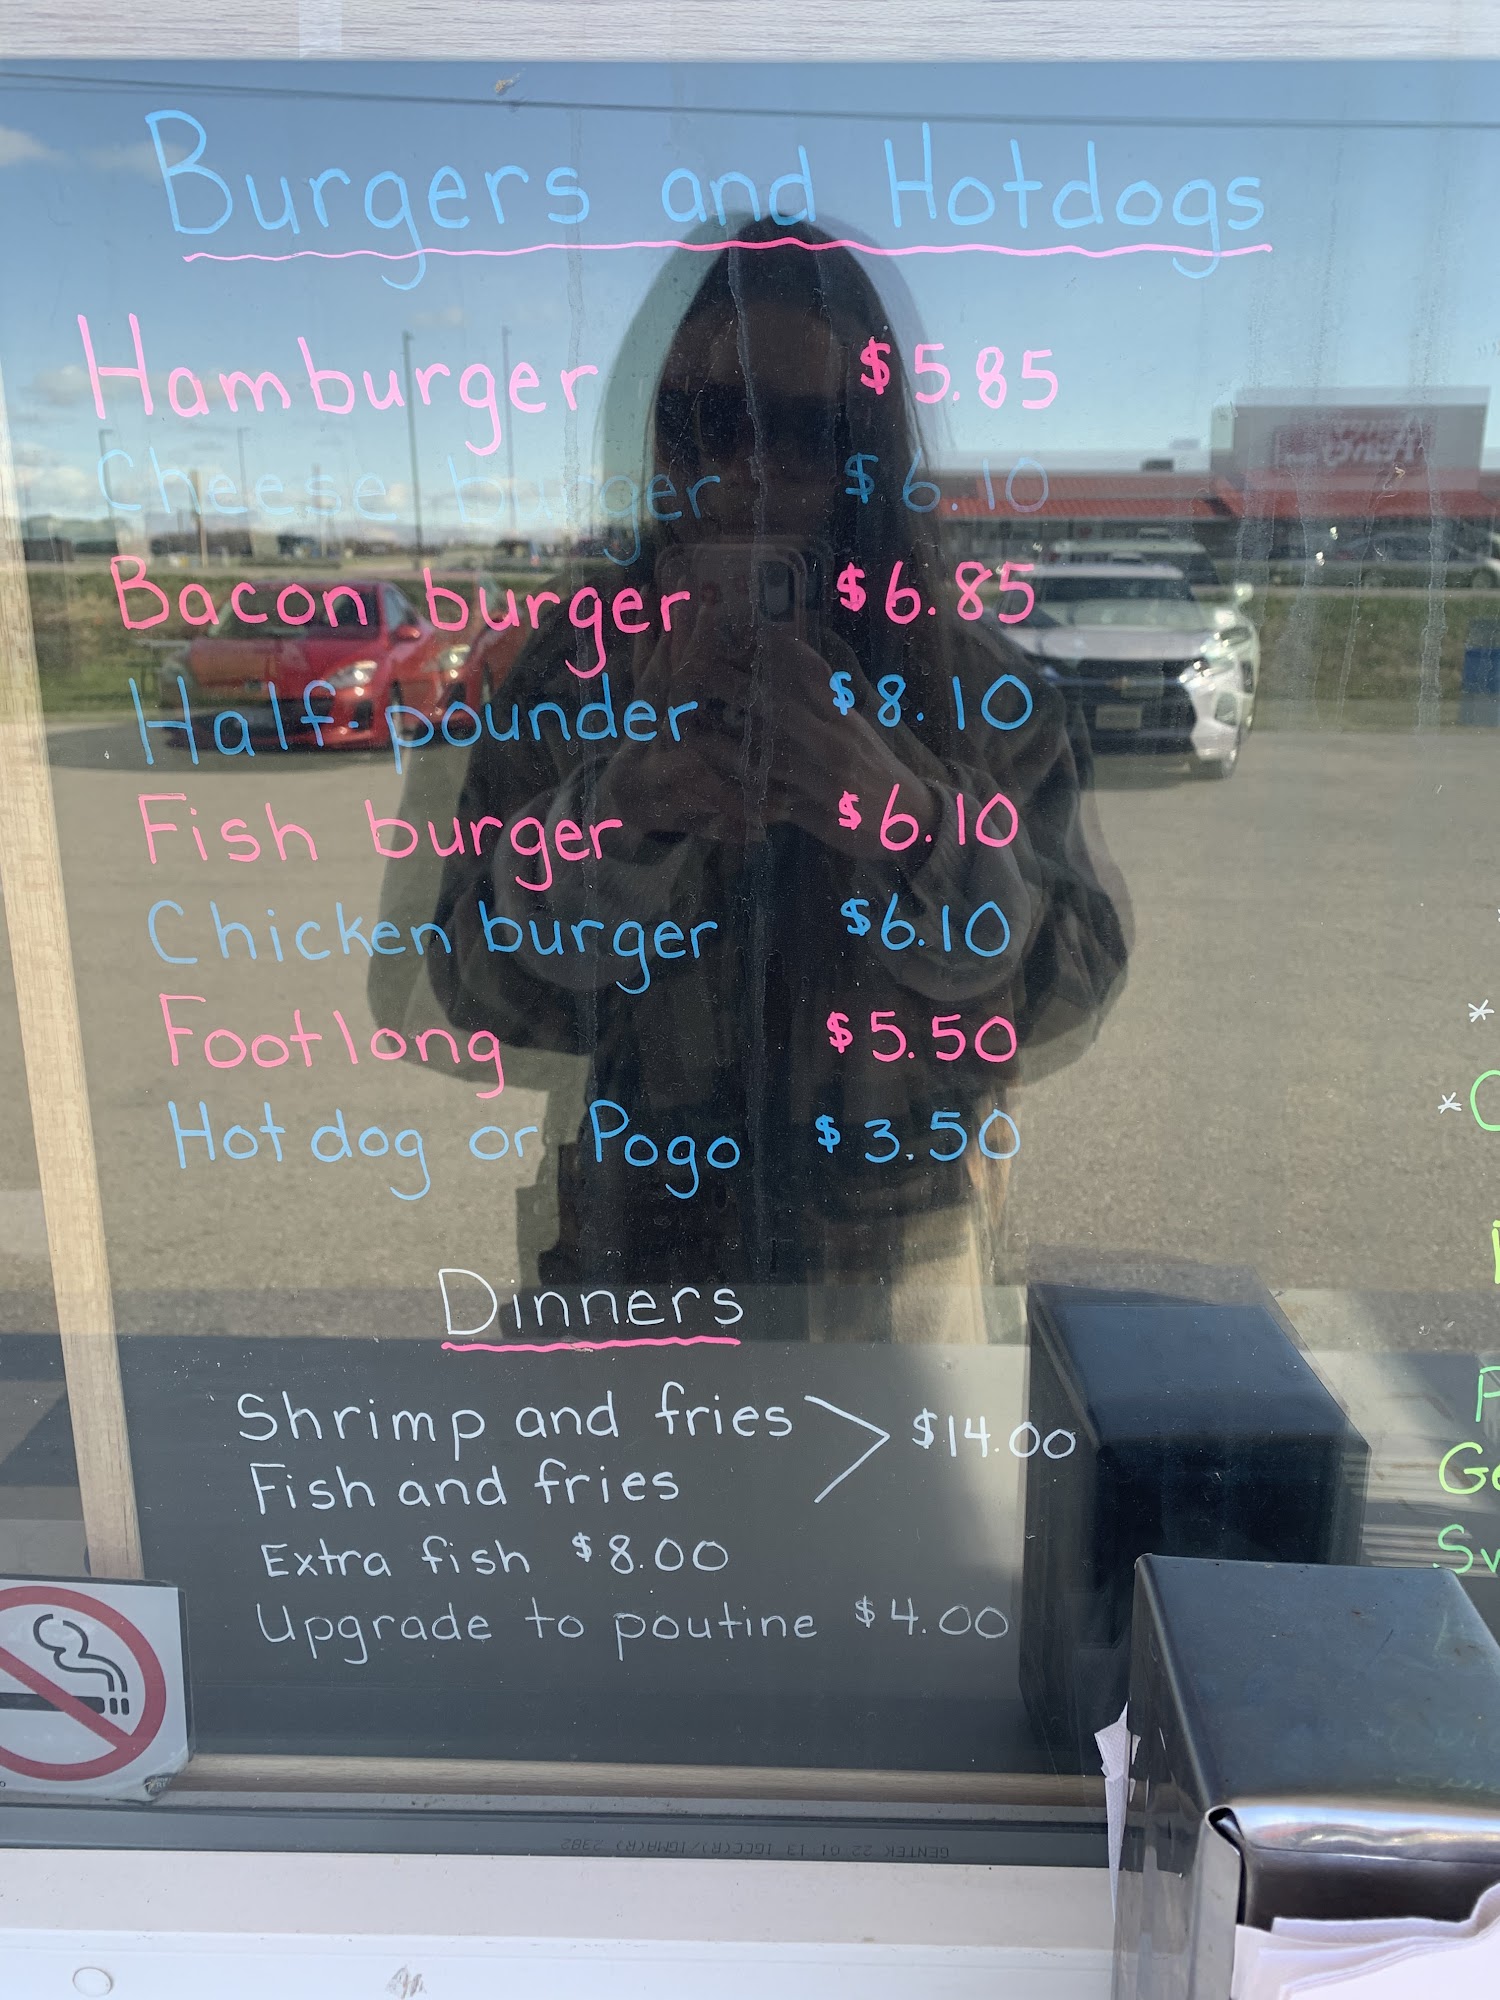 Burgers and Hotdogs
Hamburger $5.85
Cheese burger $6.10
Bacon burger $6.85
Half-pounder $8.10
Fish burger $6.10
Chicken burger $6.10
Footlong $5.50
Hot dog or Pogo $3.50
Dinners
Shrimp and fries
$14.00
Fish and fries
Extra fish $8.00
Upgrade to poutine $4.00